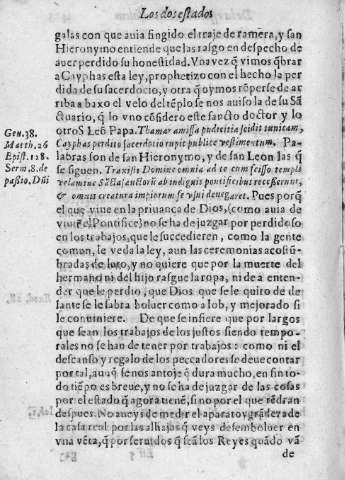 Los dos estados
galas con que auia fingido el traje de ramera, y san
Hieronymo entiende que las rasgo en despecho de
auer perdido su honestidad. Vna vez q̃ vimos q̃brar
a Cayphas esta ley, prophetizo con el hecho la per
dida de su sacerdocio, y otra q̃ oymos rõperse de ar
riba a baxo el velo del tẽplo se nos auiso la de su Sã
ctuario, q̃ lo vno cõsidero este sancto doctor y lo
otro S. Leõ Papa. Thamar amissa pudicitia scidit tunicam,
Cayphas perdito sacerdotio rupit publice vestimentum. Pa-
labras son de san Hieronymo, y de san Leon las q̃
se siguen. Traxisti Domine omnia ad te cum scisso templi
velamine Sãcta sanctorũ ab indignis pontificibus recesserunt,
& omnis creatura impiorum se vsui denegaret. Pues porq̃
el que viue en la priuança de Dios, (como auia de
viuir el Pontifice) no se ha de juzgar por perdido so
en los trabajos, que le succedieren, como la gente
comun, le veda la ley, aun las ceremonias acostũ-
bradas de luto, y no quiere que por la muerte del
hermano ni del hijo rasgue la ropa, ni de a enten-
der que le perdio, que Dios que se le quito de de
lante se le sabra boluer como a Iob, y mejorado si
le conuiniere. De que se infiere que por largos
que sean los trabajos de los justos siendo tempo-
rales no se han de tener por trabajos: como ni el
descanso y regalo de los peccadores se deue contar
por tal, aunq̃ se nos antoje q̃ dura mucho, en fin to-
do tiẽpo es breue, y no se ha de juzgar de las cosas
por el estado q̃ agora tienẽ, si no por el que rẽdran
despues. No aueys de medrer el aparato y grãdeza de
la casa real por las alhajas q̃ veys desemboluer en
vna vẽta, q̃ por seruidos q̃ seã los Reyes quãdo vã
de
Gen. 38.
Matth. 26
Epist. 128.
Serm. 8. de
passio. Dñi